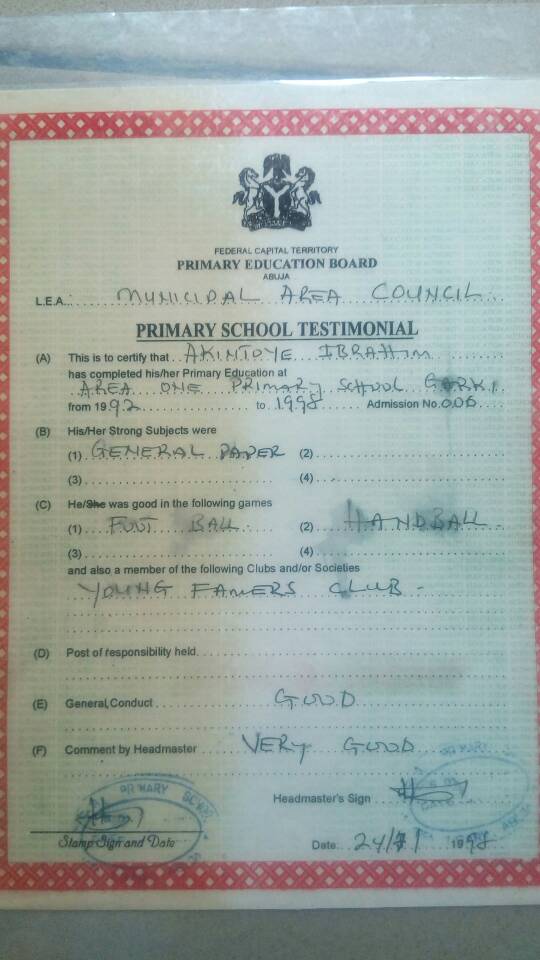 FEDERAL CAPITAL TERRITORY
PRIMARY EDUCATION BOARD
ABUJA
L.E.A. MUNICIPAL AREA COUNCIL
PRIMARY SCHOOL TESTIMONIAL
(A) This is to certify that AKINTOYE IBRAHIM
has completed his/her Primary Education at
AREA ONE PRIMARY SCHOOL GARKI
from 1992 to 1998 Admission No. 006
(B) His/Her Strong Subjects were
(1) GENERAL PAPER (2)
(3) (4)
(C) He/She was good in the following games
(1) FOOT BALL (2) HANDBALL
(3) (4)
and also a member of the following Clubs and/or Societies
YOUNG FAMERS CLUB -
(D) Post of responsibility held.
(E) General, Conduct GOOD
(F) Comment by Headmaster VERY GOOD
Headmaster's Sign
PRIMARY
Stamp Sign and Date
Date: 24/ 1998